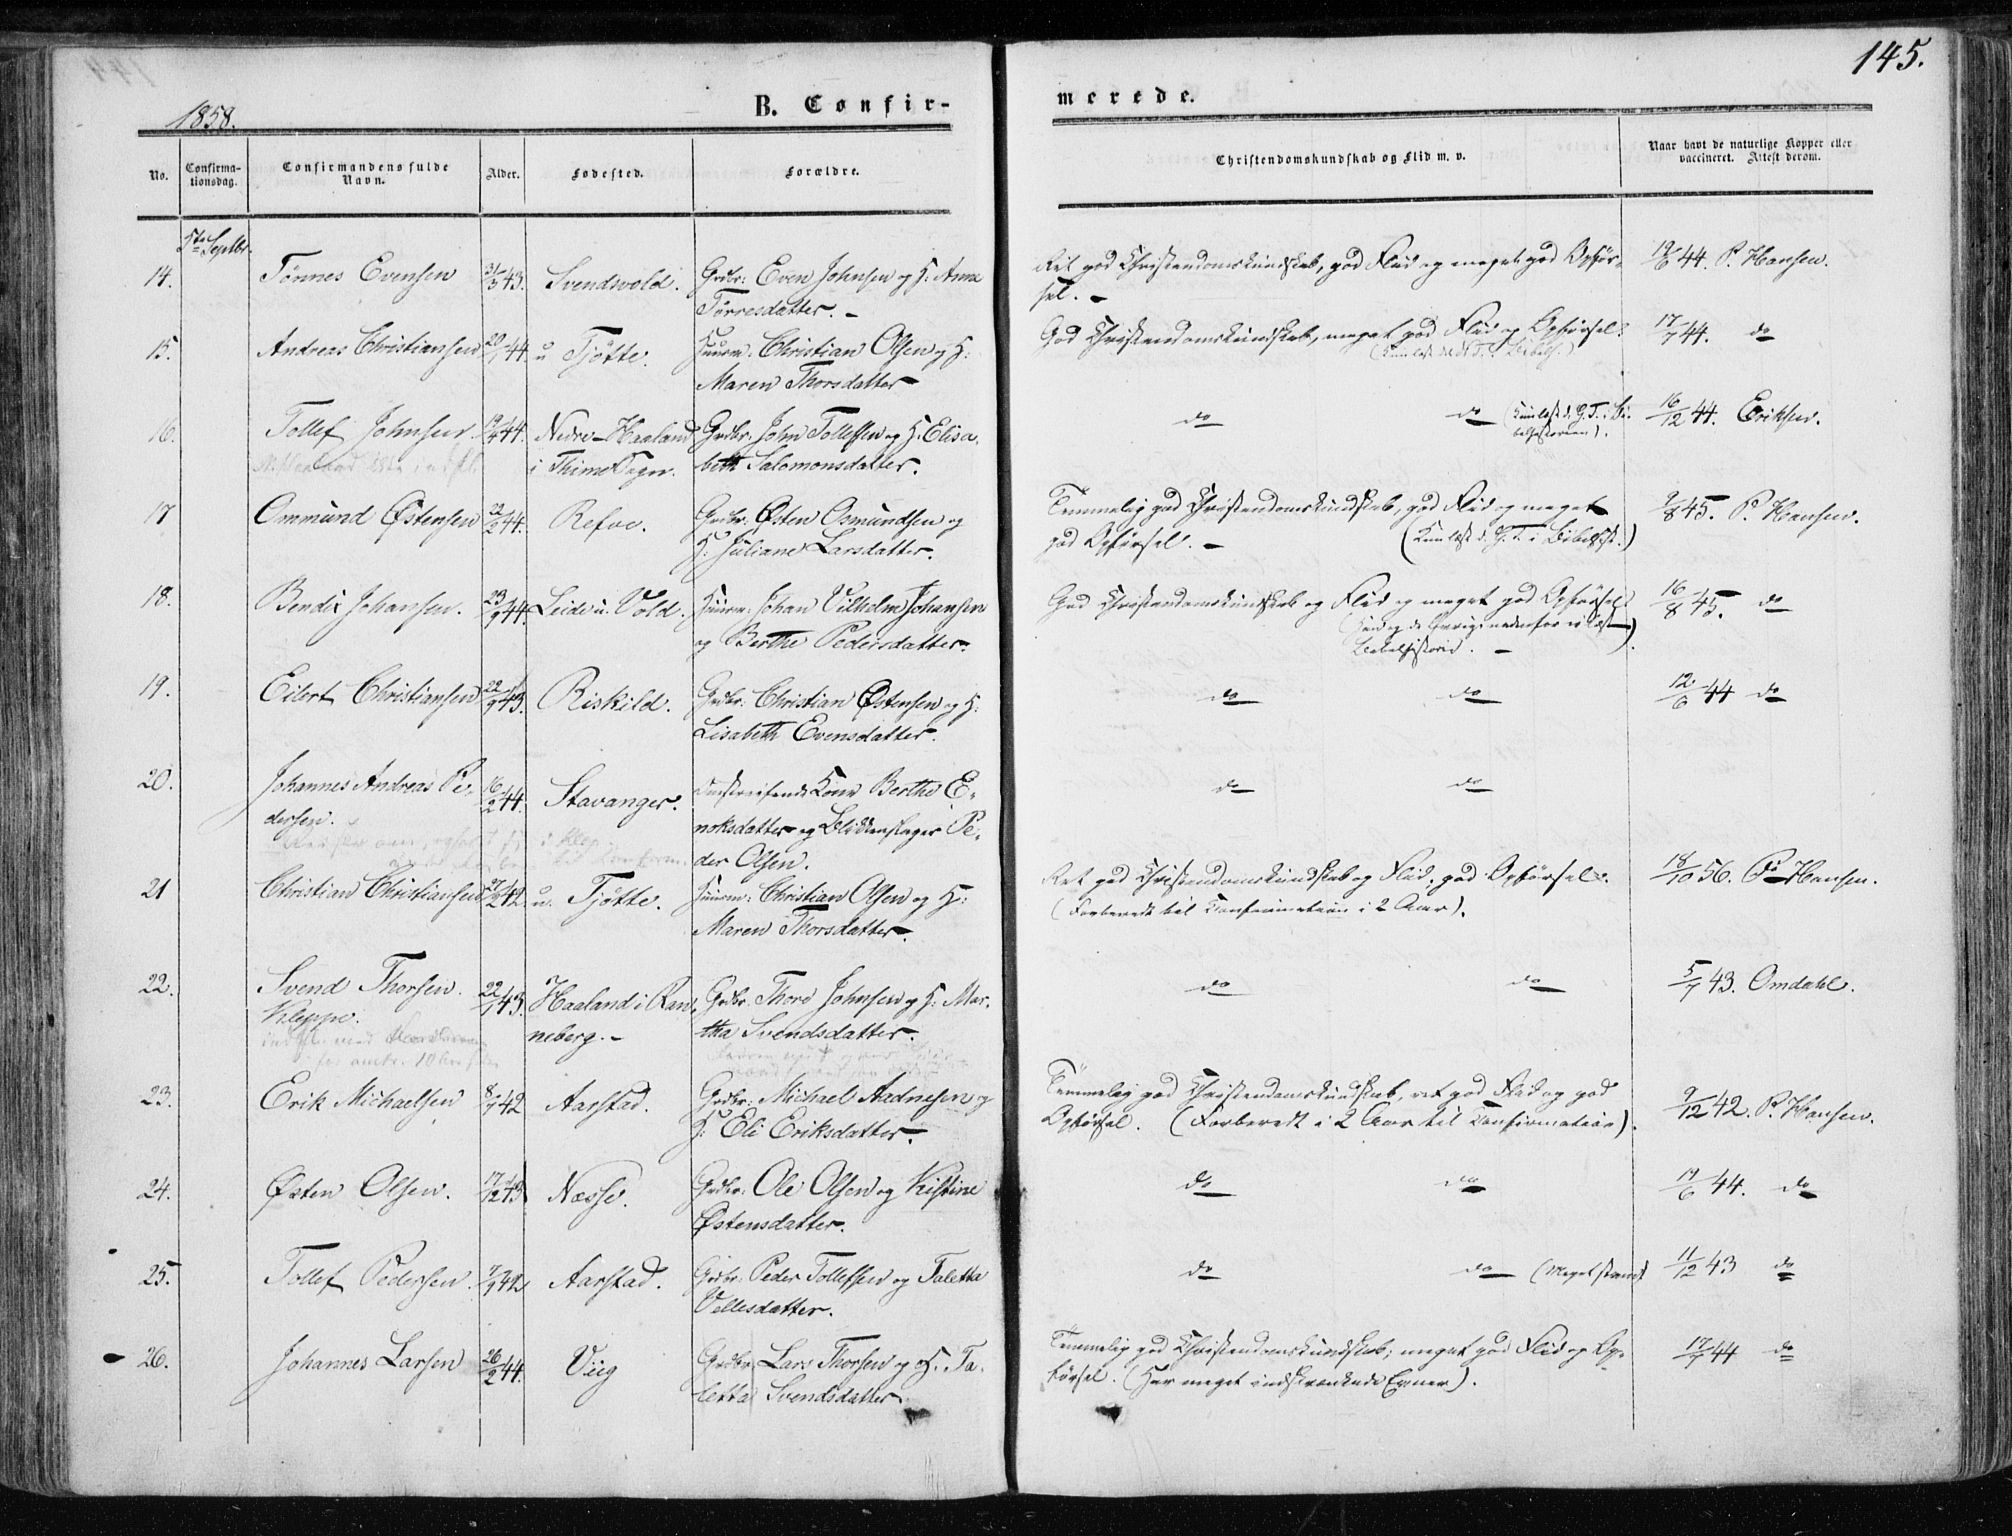 145.
1858.
B. Confir-
merede.
No.
Confirma-
tionsdag.
Confirmandens fulde
Navn.
Alder.
Fødested.
Forældre.
Christendomskundskab og Flid m. v.
Naar havt de naturlige Kopper eller
vaccineret. Attest derom.
5te Septbr.
14. Tønnes Evensen 31/3 43. Svendsvold. Grdbr: Even Johnsen og H: Anna
Tørresdatter. —
Ret god Christendomskundskab, god Flid og meget god Opfør-
sel. —
19/6 44. P. Hansen.
15. Andreas Christiansen 20/1 44. u Tjøtte. Huusm. Christian Olsen og H:
Maren Thorsdatter
God Christendomskundskab, meget god Flid og Opførsel.
17/7 44. do
16. Tollef Johnsen 19/4 44. Nedre-Haaland Grdbr: John Tollefsen og H: Elisa-
i Thime Sogn. beth Salomonsdatter.
do do (Kun læst d. G. T. i Bi-
belhistorien).
16/12 44. Eriksen.
17 Ommund Østensen 22/2 44. Refve. Grdbr: Østen Osmundsen og
H: Juliane Larsdatter.
Temmelig god Christendomskundskab, god Flid og meget
god Opførsel. — (Kun læst d. G. T. i Bibelhist.)
9/8 45. P. Hansen.
18. Bendix Johansen. 23/9 44. Leide u. Vold. Huusm: Johan Vilhelm Johansen
og Berthe Pedersdatter.
God Christendomskundskab og Flid og meget god Opførsel
Bibelhistorie. —
16/8 45. do
19. Eilert Christiansen 22/9 43. Riskild. Grdbr: Christian Østensen og H:
Lisabeth Evensdatter.
do do
12/6 44 do
20. Johannes Andreas Pe- 16/2 44. Stavanger. Omstreifende Kone Berthe E-
dersen. noksdatter og Blikkenslager Pe-
der Olsen.
do do
21 Christian Christiansen 27/2 42. u. Tjøtte. Huusm: Christian Olsen og H:
Maren Thorsdatter.
Ret god Christendomskundskab og Flid, god Opførsel.
(Forberedt til Confirmation i 2 Aar).
18/10 56. P. Hansen.
22. Svend Thorsen. 22/1 43. Haaland i Ran- Grdbr. Thore Johnsen og H: Mar-
Kleppe. neberg. — tha Svendsdatter.
do do
5/7 43. Omdahl.
23. Erik Michaelsen 8/7 42 Aarstad. Grdbr: Michael Aadnesen og
H: Eli Eriksdatter.
Temmelig god Christendomskundskab, ret god Flid og god
Opførsel. (Forberedt i 2 Aar til Confirmation).
9/12 42. P. Hansen.
24. Østen Olsen. 17/12 43 Næsse. Grdbr: Ole Olsen og Kistine
Østensdatter.
do do
19/6 44. do
25. Tollef Pedersen. 7/9 42 Aarstad. Grdbr: Peder Tollefsen og Taletta
Vellesdatter.
do do (Meget svend
11/12 43 do
26. Johannes Larsen 26/2 44. Viig Grdbr: Lars Thorsen og H: Ta-
letta Svendsdatter.
Temmelig god Christendomskundskab; meget god Flid og Op-
førsel. (Har meget indskrænkede Evner).
17/7 44 do